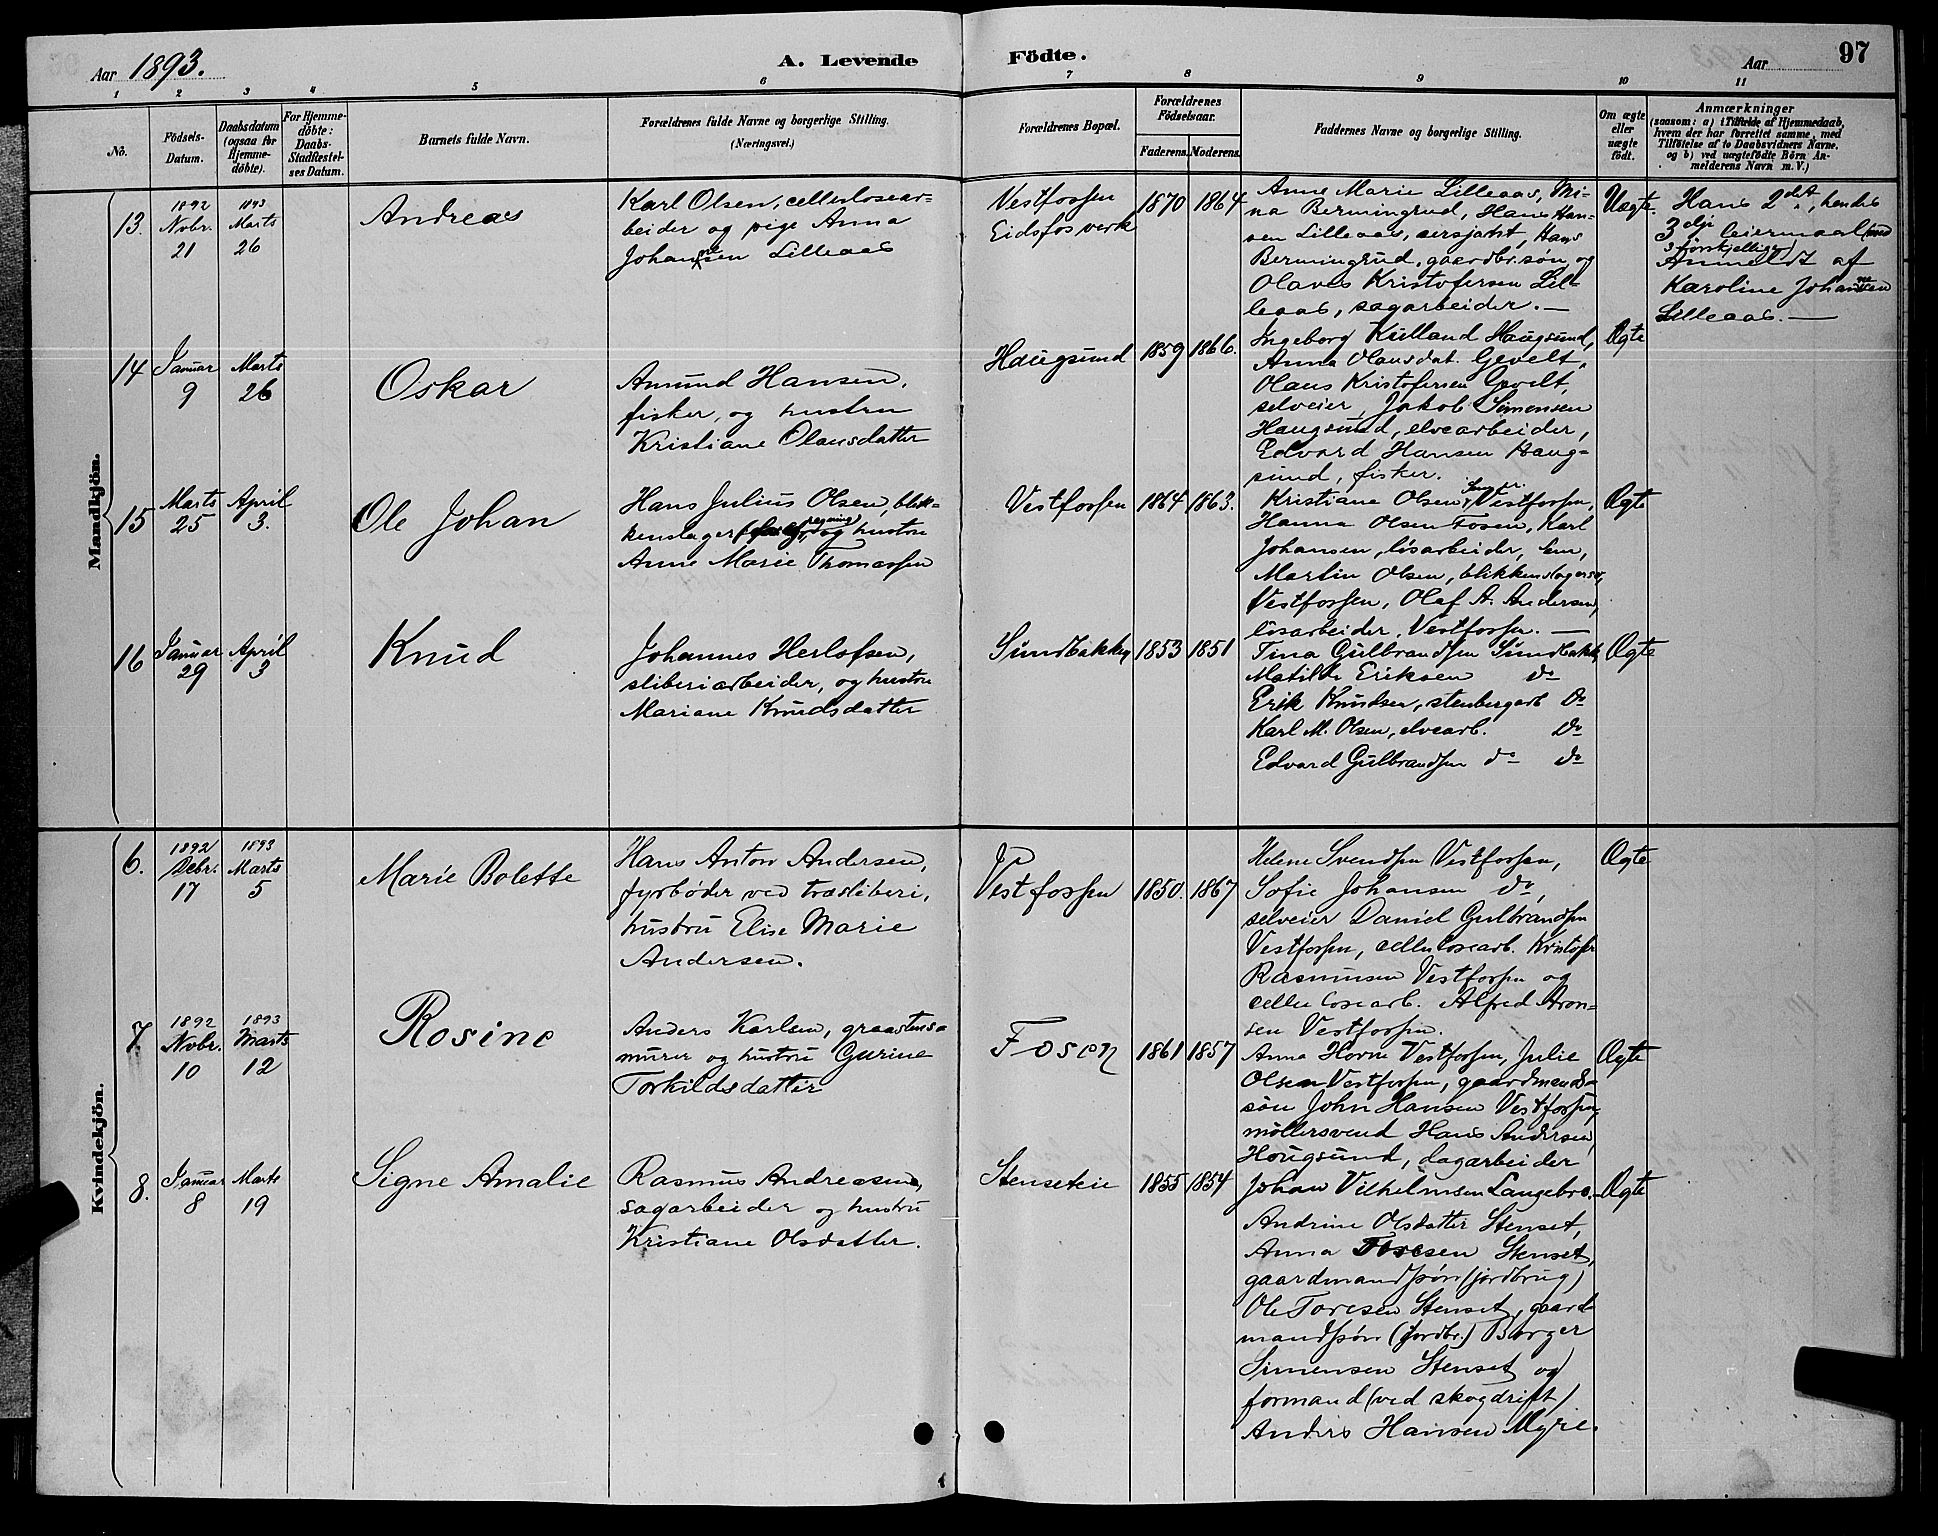 Aar 1893.
A. Levende Födte.
Aar
97
1 2 3 4 5 6 7 8 9 10 11
No.
Födsels-Datum.
Daabsdatum (ogsaa for Hjemme-döbte).
For Hjemme-döbte: Daabs-Stadfæstel-ses Datum.
Barnets fulde Navn.
Forældrenes fulde Navne og borgerlige Stilling.
(Næringsvei.)
Forældrenes Bopæl.
Forældrenes Födselsaar.
Faderens. Moderens.
Faddernes Navne og borgerlige Stilling.
Om ægte eller uægte födt.
Anmærkninger
(saasom: a) i Tilfælde af Hjemmedaab,
hvem der har forrettet samme, med
Tilföielse af to Daabsvidners Navne,
og b) ved uægtefödte Börn An-
melderens Navn m. V.)
Mandkjön.
13.
1892 Novbr. 21
1893 Marts 26
Andreas
Karl Olsen, cellulosear-
beider og pige Anna
Johansen Lilleaas
Vestfossen
Eidsfosverk
1870 1864
Anne Marie Lilleaas, Mi-
na Bermingrud, Hans Han-
sen Lilleaas, Hans
Bermingrud, gaardbr.søn, og
Olaves Kristofersen Lil-
leaas, sagarbeider. —
Uægte.
Hans 2det, hendes
3die leiermaal (med
3 forskjellige)
Anmeldt af
Karoline Johansen
Lilleaas. —
14
Januar 9
Marts 26
Oskar
Amund Hansen,
fisker, og hustru
Kristiane Olausdatter
Haugsund
1859 1866.
Ingeborg Kulland Haugsund,
Anna Olausdat. Gevelt,
Olaus Kristofersen Gevelt,
selveier, Jakob Simensen
Haugsund, elvearbeider,
Edvard Hansen Haug-
sund, fisker.
Ægte
15
Marts 25
April 3.
Ole Johan
Hans Julius Olsen, blik-
kenslager og hustru
Anne Marie Thomassen
Vestfossen
1864 1863.
Kristiane Olsen Vestfossen,
Hanna Olsen Fosen, Karl
Johansen, løsarbeider, Sem,
Martin Olsen, blikkenslagersv,
Vestfossen, Olaf A. Andersen,
løsarbeider, Vestfossen. —
Ægte
16
Januar 29
April 3
Knud
Johannes Herlofsen,
sliberiarbeider, og hustru
Mariane Knudsdatter
Sundbakken
1853 1851
Tina Gulbrandsen Sundbakk.
Matilde Eriksen do
Erik Knudsen, stenbergarb do
Karl M. Olsen, elvearb. do
Edvard Gulbrandsen do do
Ægte
Kvindekjön.
6.
1892 Debr. 17
1893 Marts 5
Marie Bolette
Hans Anton Andersen,
fyrbøder ved træsliberi,
hustru Elise Marie
Andersen.
Vestfossen
1850. 1867
Helene Svendsen Vestfossen,
Sofie Johansen do,
selveier Daniel Gulbrandsen
Vestfossen, cellulosearb. Kristofer
Rasmusen Vestfossen og
cellulosearb. Alfred Aron-
sen Vestfossen.
Ægte
7
1892 Novbr. 10
1893 Marts 12
Rosine
Anders Karlsen, graastens-
murer og hustru Gurine
Torkildsdatter
Fosen
1861 1857
Anna Horne Vestfossen, Julie
Olsen Vestfossen, gaardmands-
søn John Hansen Vestfossen,
møllersvend Hans Andersen,
Hougsund, dagarbeider
Ægte
8.
Januar 8
Marts 19
Signe Amalie
Rasmus Andreasen,
sagarbeider og hustru
Kristiane Olsdatter.
Stenseteie
1855 1854
Johan Vilhelmsen Langebro.
Andrine Olsdatter Stenset,
Anna Toresen Stenset,
gaardmandssøn (jordbrug)
Ole Toresen Stenset, gaard-
mandssøn (jordbr.) Borger
Simensen Stenset og
formand (ved skogdrift)
Anders Hansen Myre.
Ægte